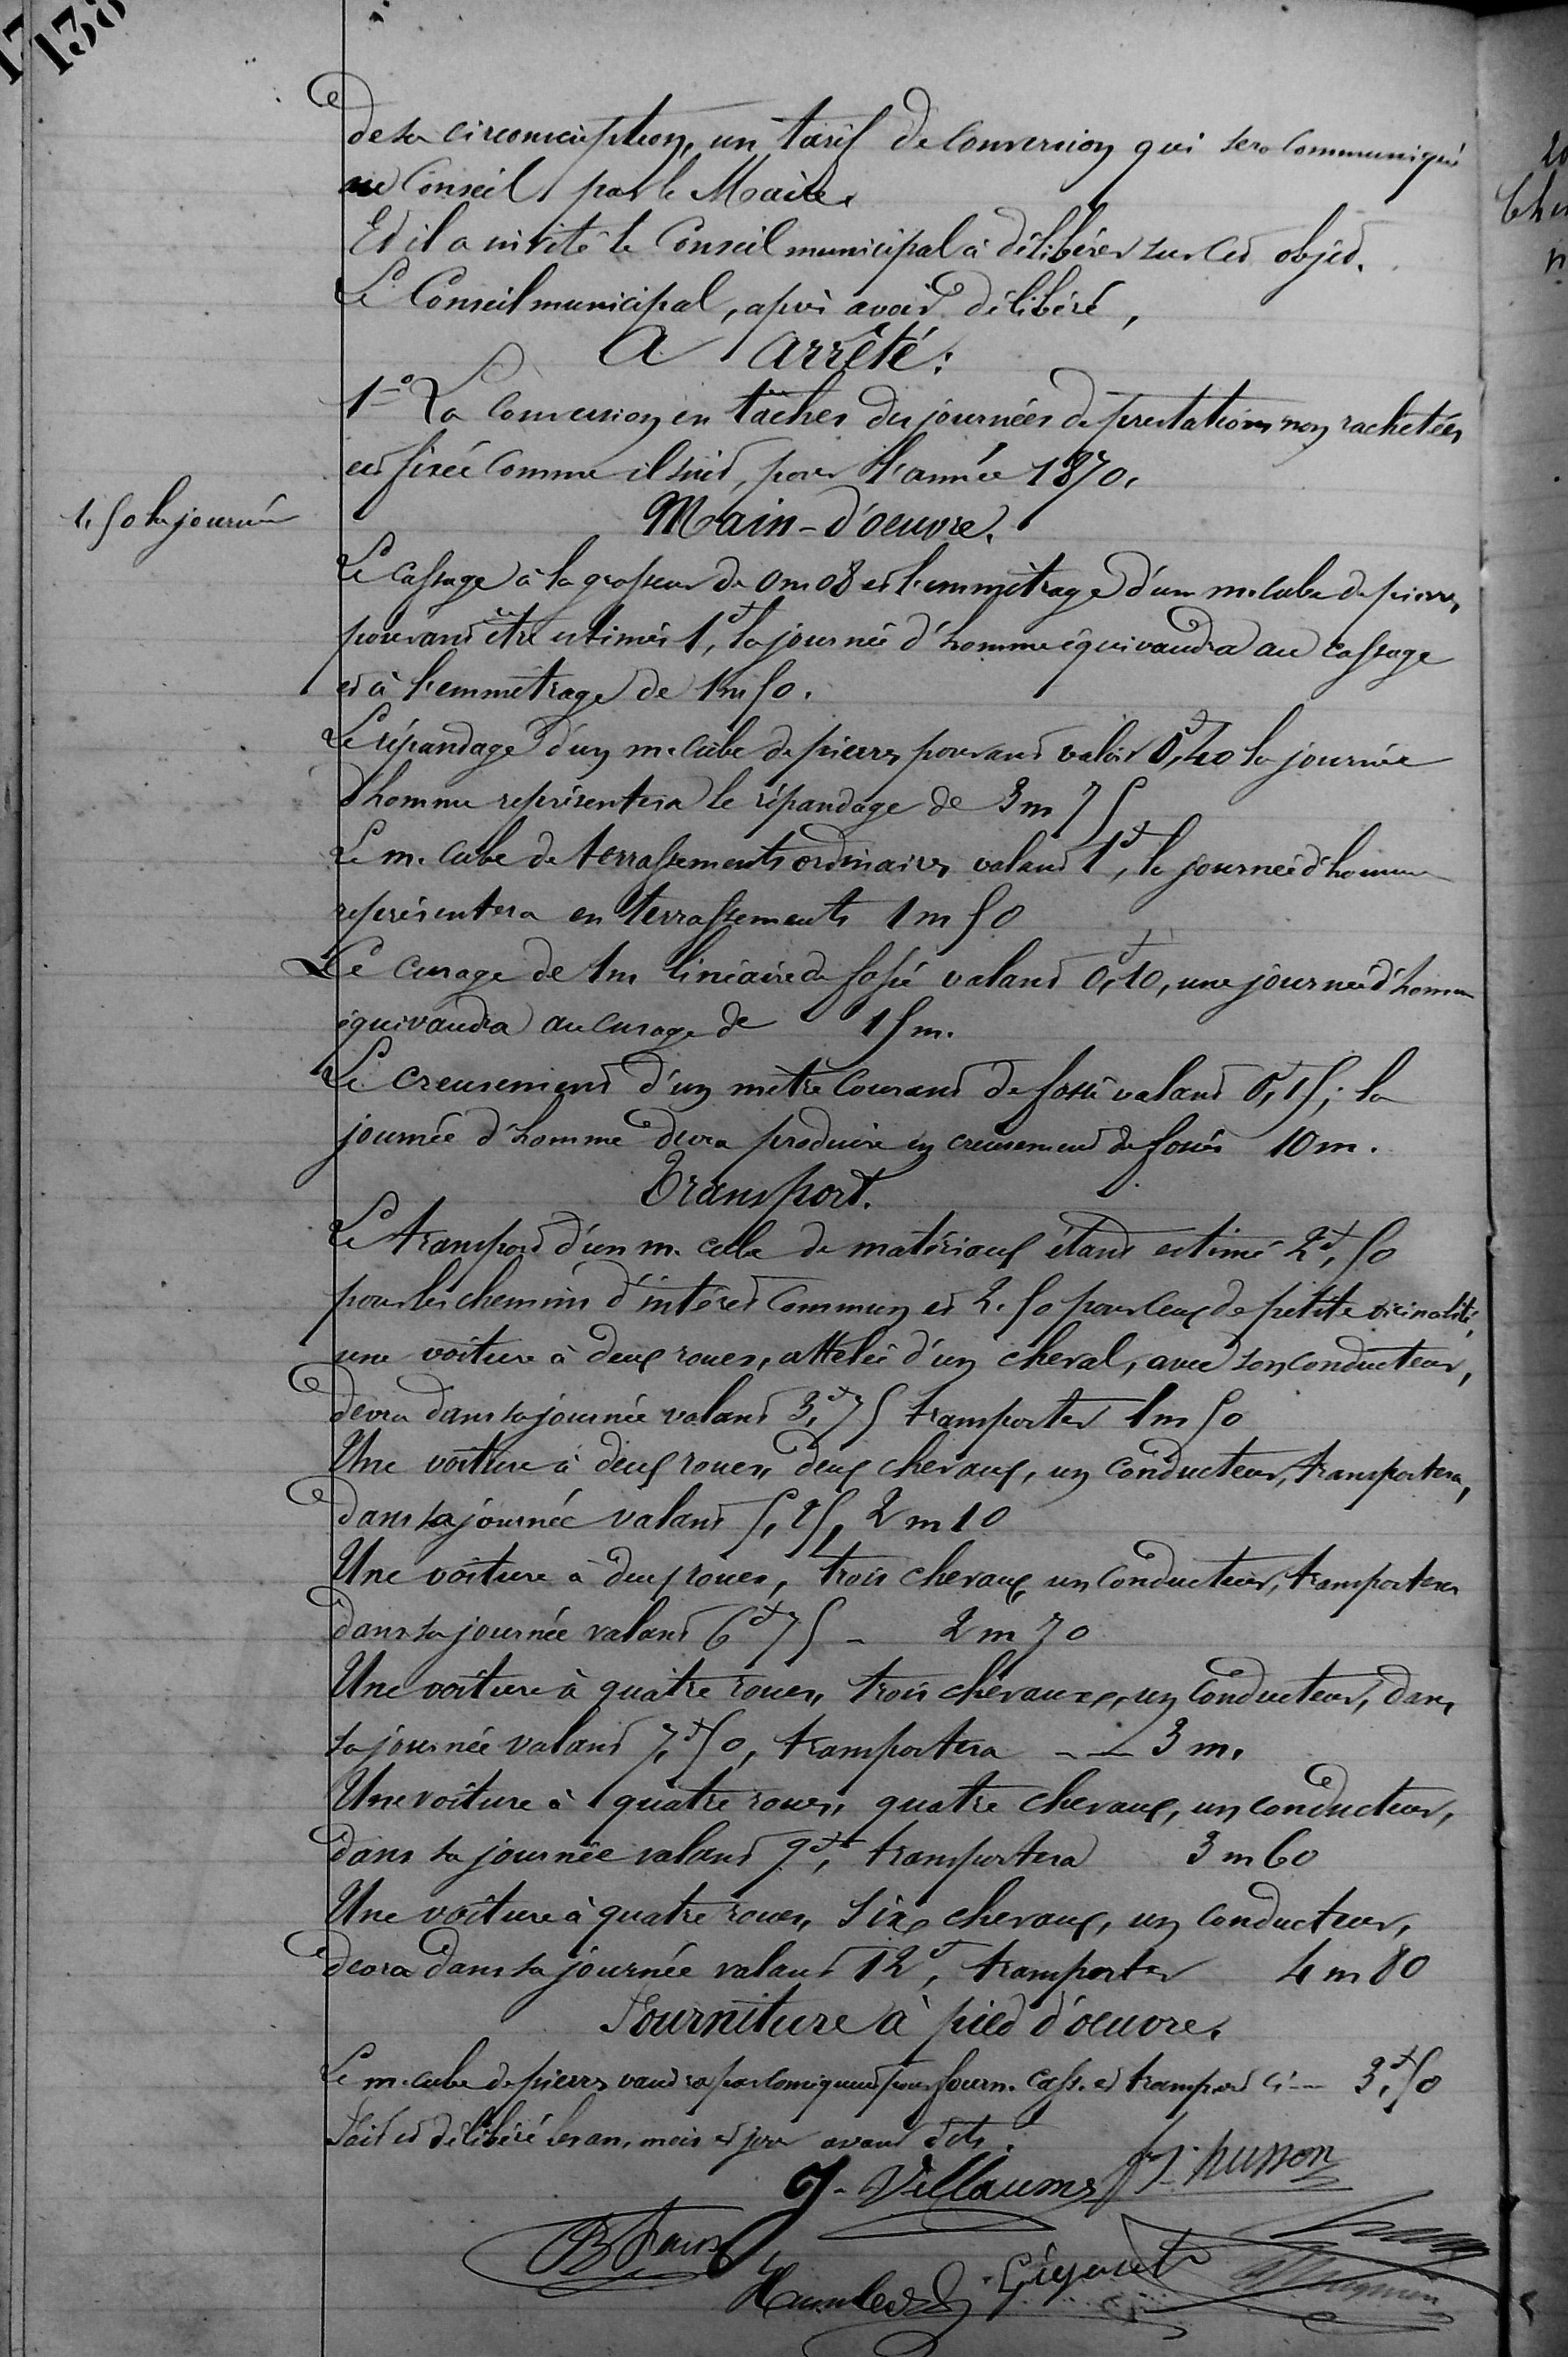 138
de sa circonscription, un tarif de conversion qui sera communiqué
au Conseil par le Maire.
Et il a invité le Conseil municipal à délibérer sur cet objet.
Le Conseil municipal, après avoir délibéré,
A arrêté:
1º La conversion en tâches des journées de prestations non rachetées
est fixée comme il suit, pour l'année 1870.
1,50 la journée
Main-d'oeuvre.
Le cassage à la grosseur de 0m08 et l'emmétrage d'un m. cube de pierres
pouvant être estimés 1f, la journée d'homme équivaudra au cassage
et à l'emmétrage de 1m50.
Le répandage d'un m. cube de pierres pouvant valoir 0f,40 la journée
d'homme représentera le répandage de 3m75
Le m. cube de terrassements ordinaires valant 1f, la journée d'homme
représentera en terrassements 1m50
Le curage de 1m linéaire de fossé valant 0f,10, une journée d'homme
équivaudra au curage de 15m.
Le creusement d'un mètre courant de fossé valant 0f,15; la
journée d'homme devra produire en creusement de fossés 10m.
Transport.
Le transport d'un m. cube de matériaux étant estimé 2f,50
pour les chemins d'intérêt commun et 2.50 pour ceux de petite vicinalité,
une voiture à deux roues, attelée d'un cheval, avec son conducteur,
devra dans sa journée valant 3f,75 transporter 1m50
Une voiture à deux roues, deux chevaux, un conducteur, transportera,
dans sa journée valant 5,25, 2m10
Une voiture à deux roues, trois chevaux, un conducteur, transportera
dans sa journée valant 6f75 - 2m70
Une voiture à quatre roues, trois chevaux, un conducteur, dans
sa journée valant 7f,50, transportera -- 3m.
Une voiture à quatre roues, quatre chevaux, un conducteur,
dans sa journée valant 9f, transportera 3m60
Une voiture à quatre roues, six chevaux, un conducteur,
devra dans sa journée valant 12f, transporter 4m80
Fourniture à pied d'oeuvre.
Le m. cube de pierres vaudra par conséquent pour fourn. cass. et transport ci-- 3f,50
Fait et délibéré les an, mois et jour avant dits.
J. Villaume husson
Gigout